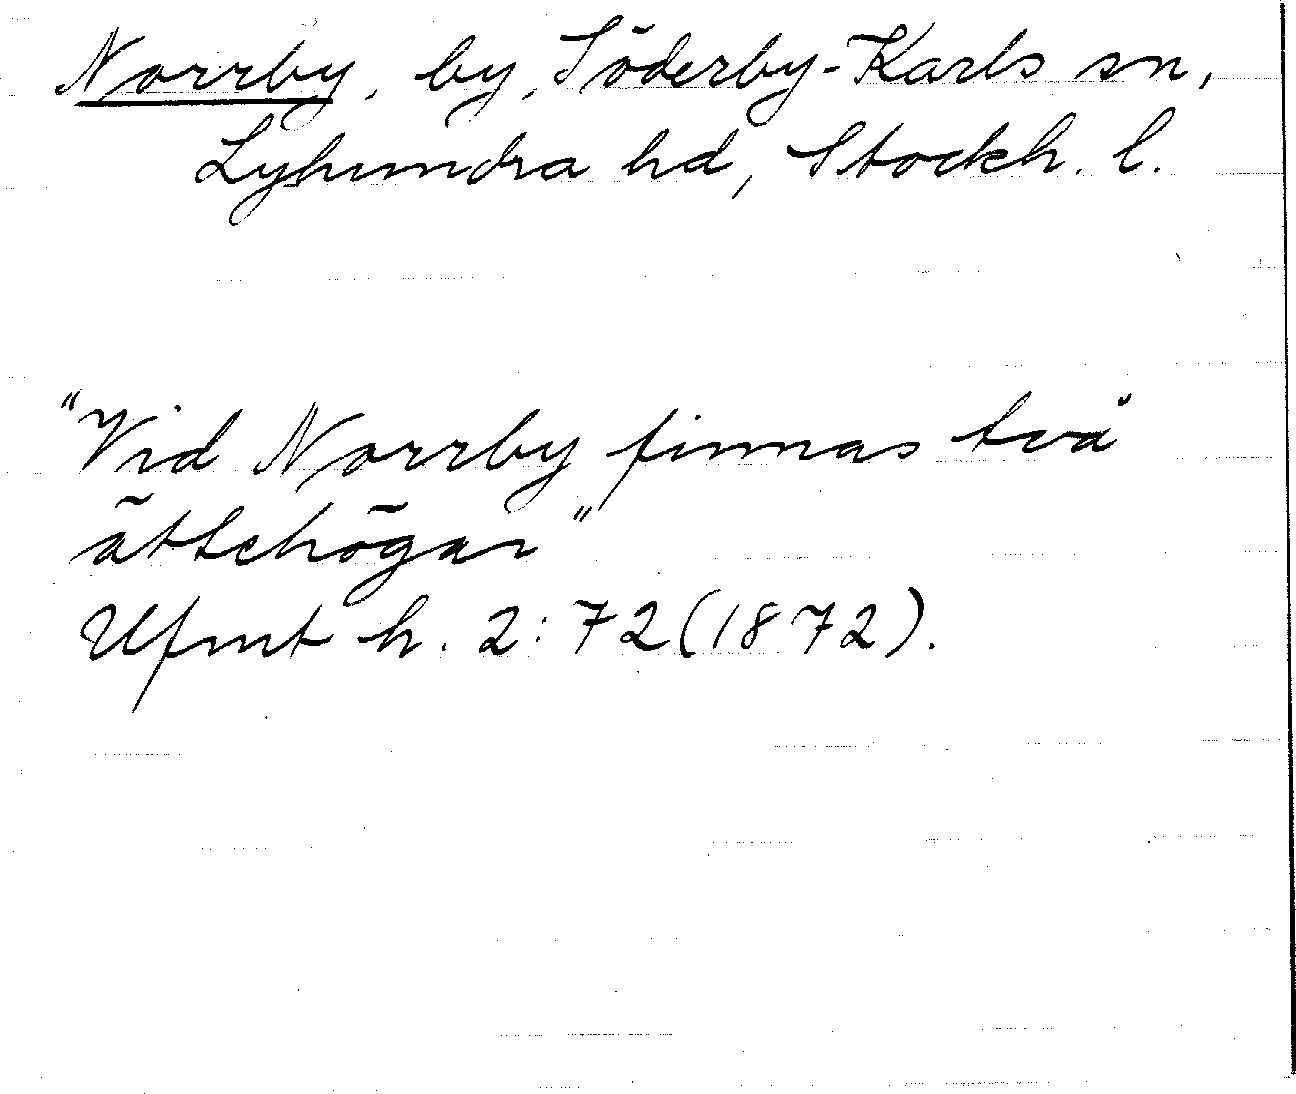 Norrby, by, Söderby-Karls sn,
Lyhundra hd, Stockh. l.
"Vid Norrby finnas två
ättehögar"
Ufmt h. 2:72(1872).